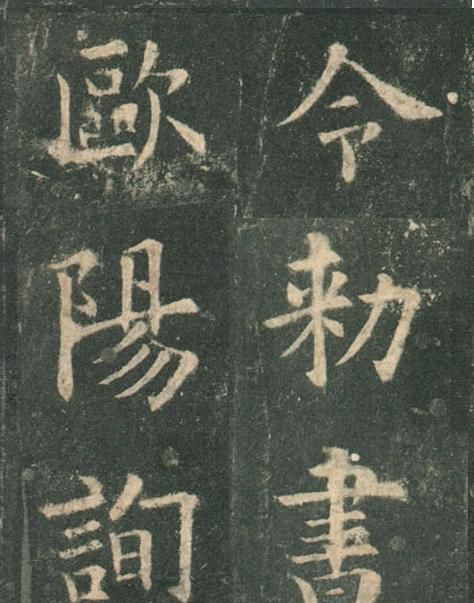 令勑書
歐陽詢